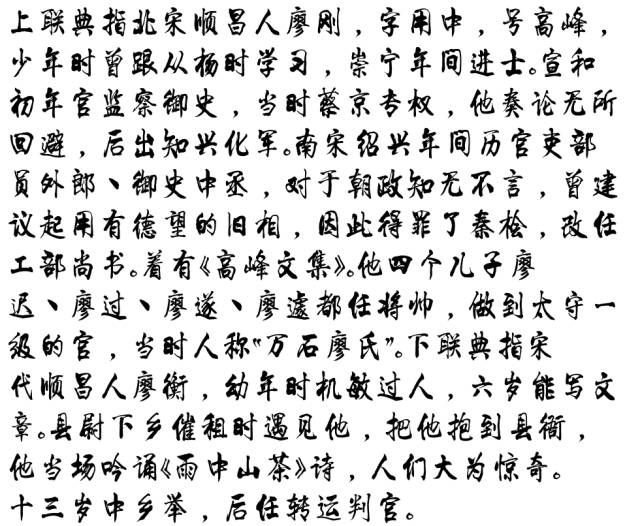 上联典指北宋顺昌人廖刚，字用中，号高峰，
少年时曾跟从杨时学习，崇宁年间进士。宣和
初年官监察御史，当时蔡京专权，他奏论无所
回避，后出知兴化军。南宋绍兴年间历官吏部
员外郎、御史中丞，对于朝政知无不言，曾建
议起用有德望的旧相，因此得罪了秦桧，改任
工部尚书。着有《高峰文集》。他四个儿子廖
迟、廖过、廖遂、廖遽都任将帅，做到太守一
级的官，当时人称“万石廖氏”。下联典指宋
代顺昌人廖衡，幼年时机敏过人，六岁能写文
章。县尉下乡催租时遇见他，把他抱到县衙，
他当场吟诵《雨中山茶》诗，人们大为惊奇。
十三岁中乡举，后任转运判官。